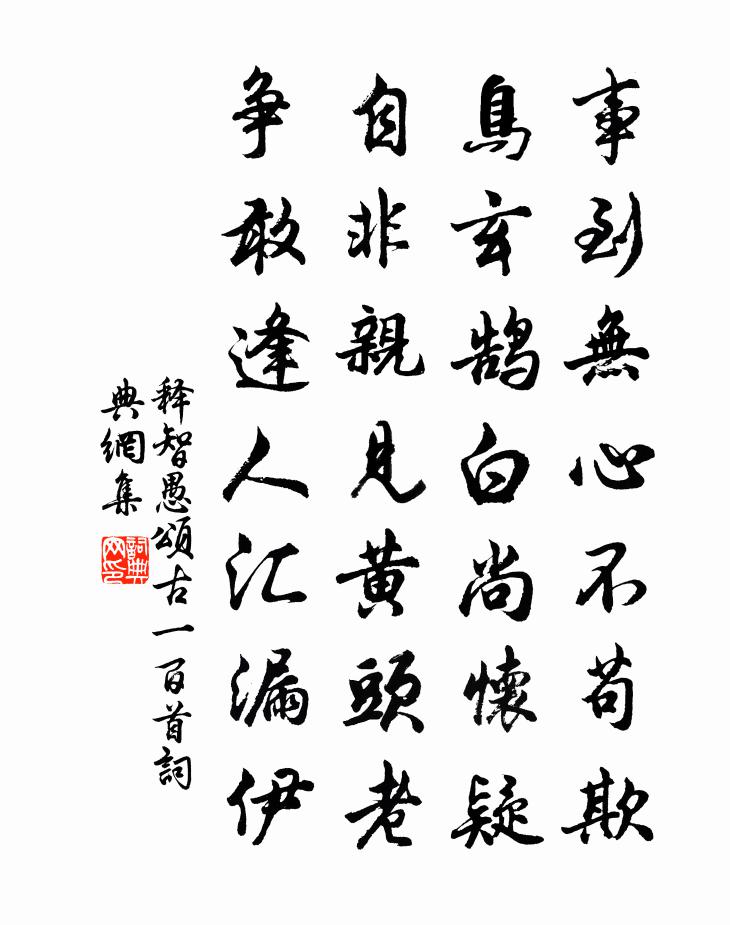 事到無心不苟欺
烏玄鵠白尚懷疑
自非親見黃頭老
争敢逢人汇漏伊
释智愚頌古一百首詞
典網集
詞典
网印